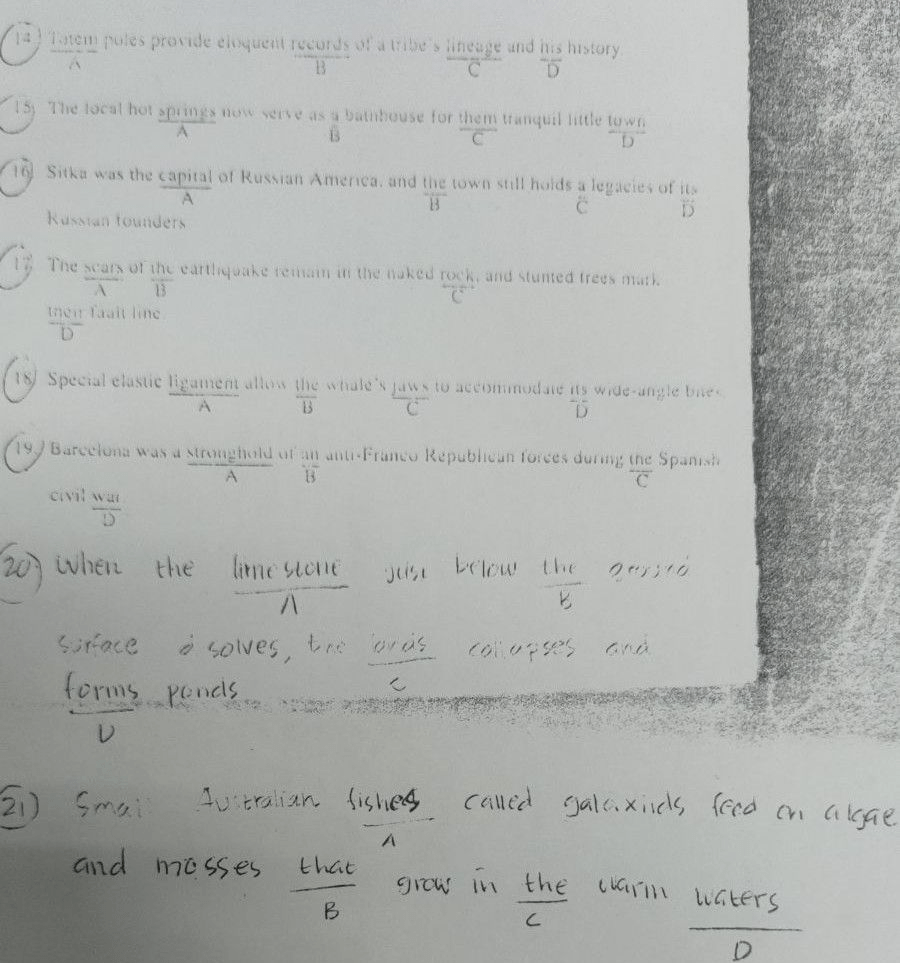 14) Totem poles provide eloquent records of a tribe's lineage and his history
A B C D
15) The local hot springs now serve as a bathhouse for them tranquil little town
A B C D
16) Sitka was the capital of Russian America, and the town still holds a legacies of its
A B C D
Russian founders
17) The scars of the earthquake remain in the naked rock, and stunted trees mark
A B C
their fault line
D
18) Special elastic ligament allow the whale's jaws to accommodate its wide-angle bites
A B C D
19) Barcelona was a stronghold of an anti-Franco Republican forces during the Spanish
A B C
civil war
D
20) When the limestone just below the
A B
surface dissolves, the collapses and
C
forms ponds
D
21) Small Australian fishes called galaxiids feed on algae
A
and mosses that grow in the warm waters
B C D